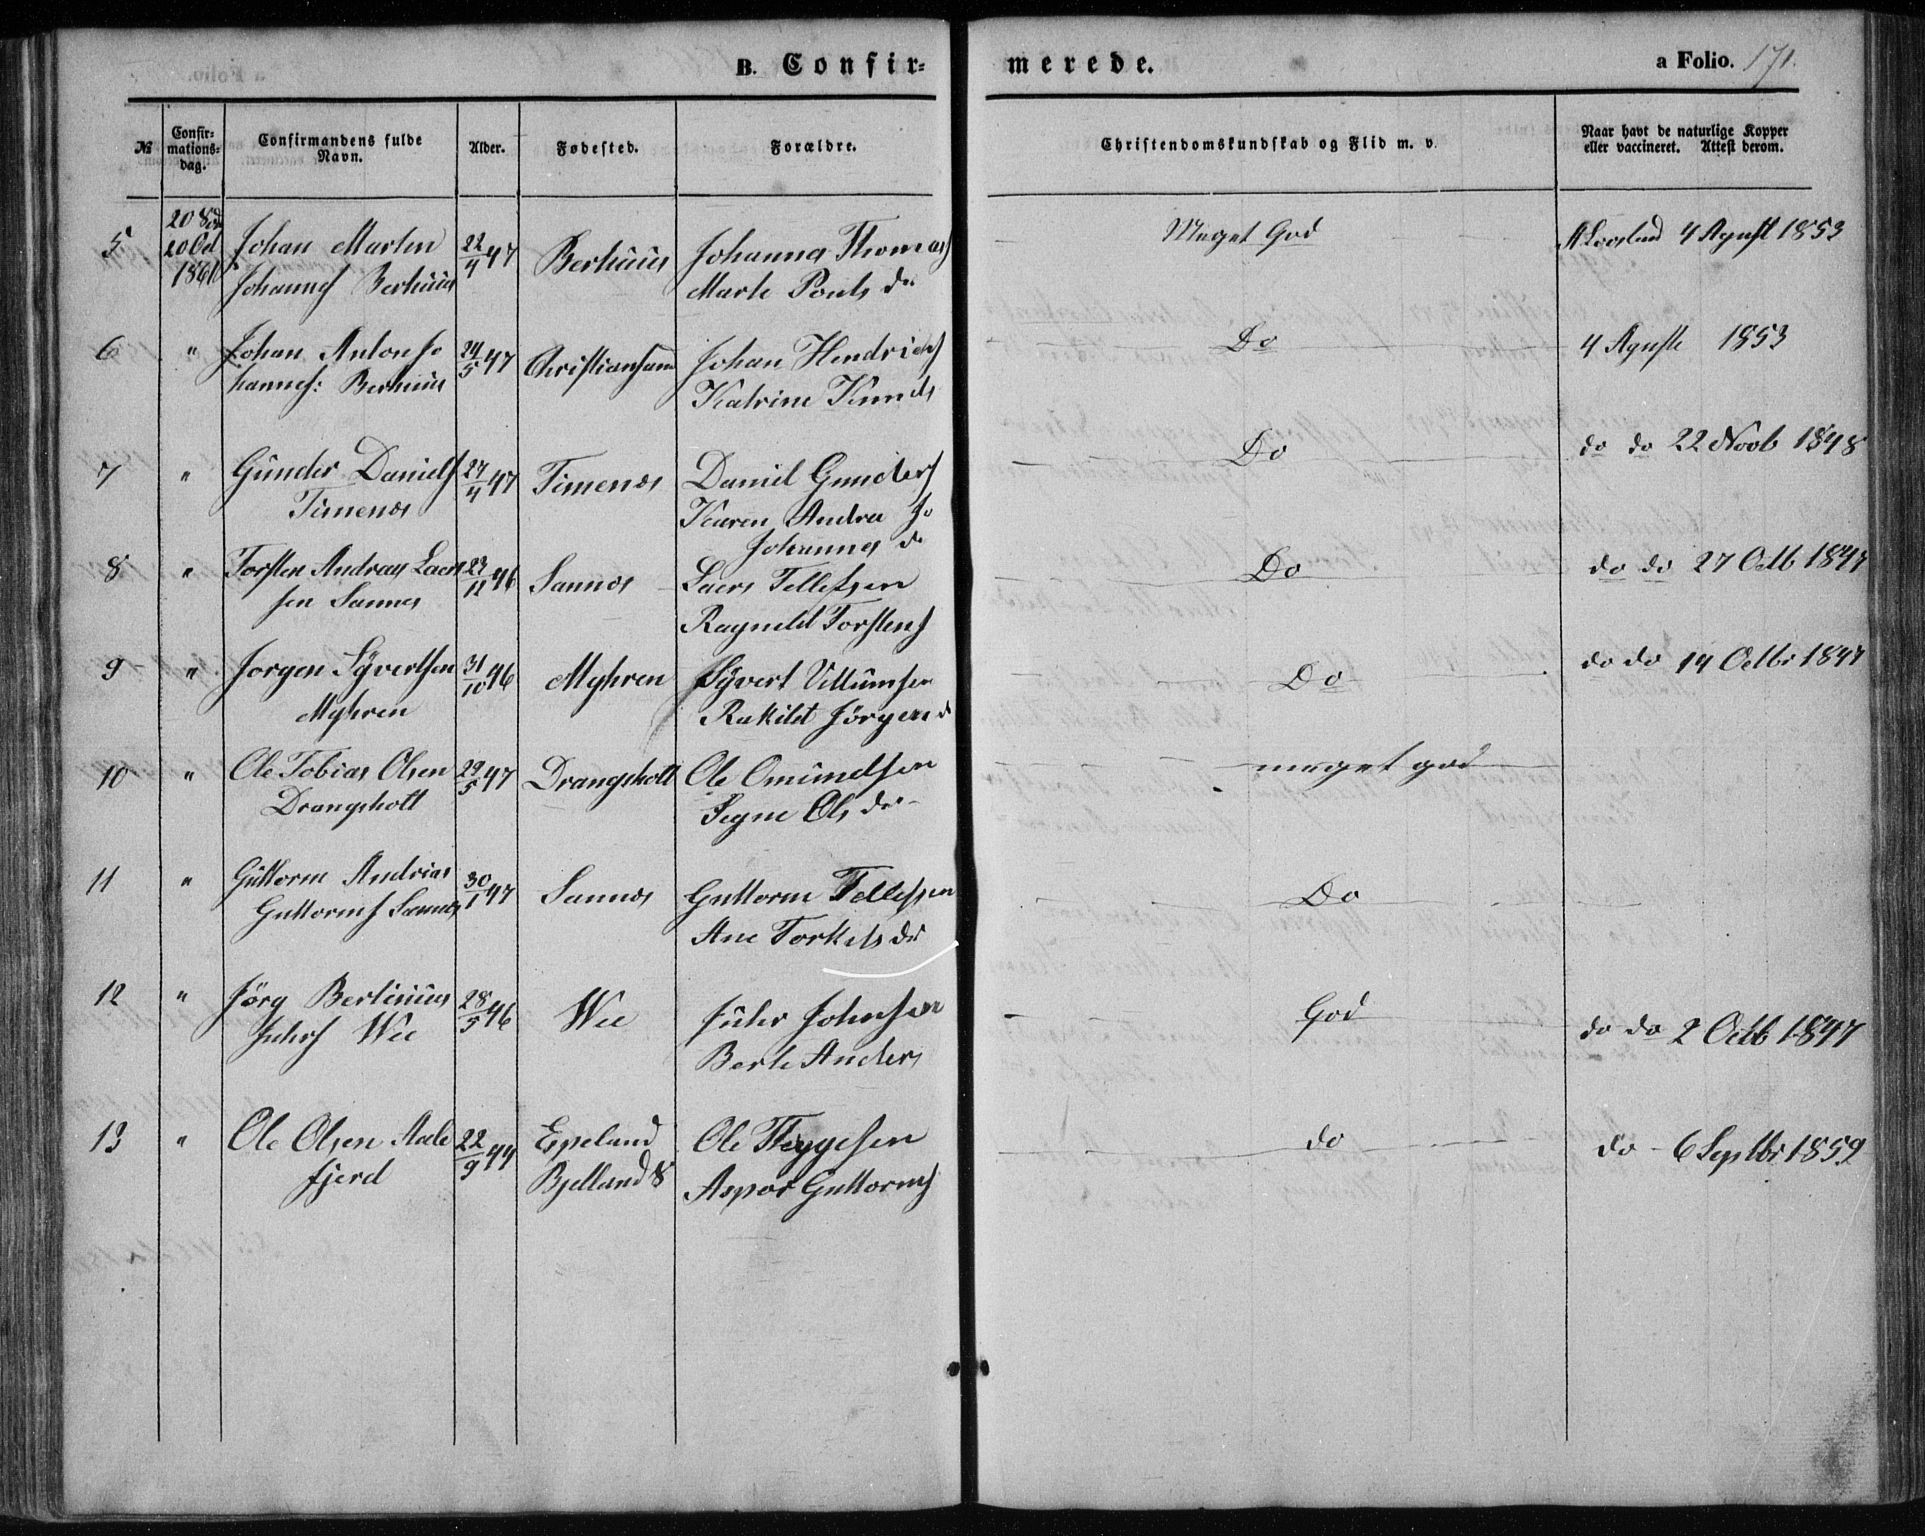 B. Confir-
merede.
a Folio. 171.
№
Confir-
mations-
dag.
Confirmandens fulde
Navn.
Alder.
Fødested.
Forældre.
Christendomskundskab og Flid m. v.
Naar havt de naturlige Kopper
eller vaccineret. Attest derom.
5
20 Oct
Johan Marten
Johannes Berhuus
22/4 47
Berhuus
Johannes Thomas
Marte Pouls d.
Meget God
4 Agust 1853
6 "
Johan Anton Jo
hannes: Berhuus
24/5 47
Christiansand
Johan Hendrichs
Katrine Knuds
Do
4 Aguste 1853
7 "
Gunder Daniels
Timenes
27/4 47
Timenes
Daniel Gunders
Karen Andrea Jo
Johannes d
Do
do do 22 Novb 1848
8 "
Torsten Andreas Laer
sen Sannes
23/12 46
Sannes
Laers Tellefsen
Ragnild Torstens
Do
do do 27 Octb 1847
9 "
Jorgen Syvertsen
Myhren
31/10 46
Myhren
Syvert Villumsen
Rakild Jörgens d
Do
do do 14 Octbr 1847
10 "
Ole Tobias Olsen
Drangsholt
29/5 47
Drangsholt
Ole Omundsen
Segne Ols dr
meget god
11 "
Guttorm Andrias
Guttorms Sannes
30/1 47
Sannes
Guttorm Tellefsen
Ane Torkels dr
Do
12 "
Jörg Bertinius
Juhrs Wee
28/5 46
Wee
Juhr Johnsen
Berte Anders
God
do do 2 Octb 1847
13 "
Ole Olsen Aale
fjerd
22/9 44
Espeland
Bjelland S
Ole Tergesen
Aspor Guttorms
do
do - 6 Septbr 1859